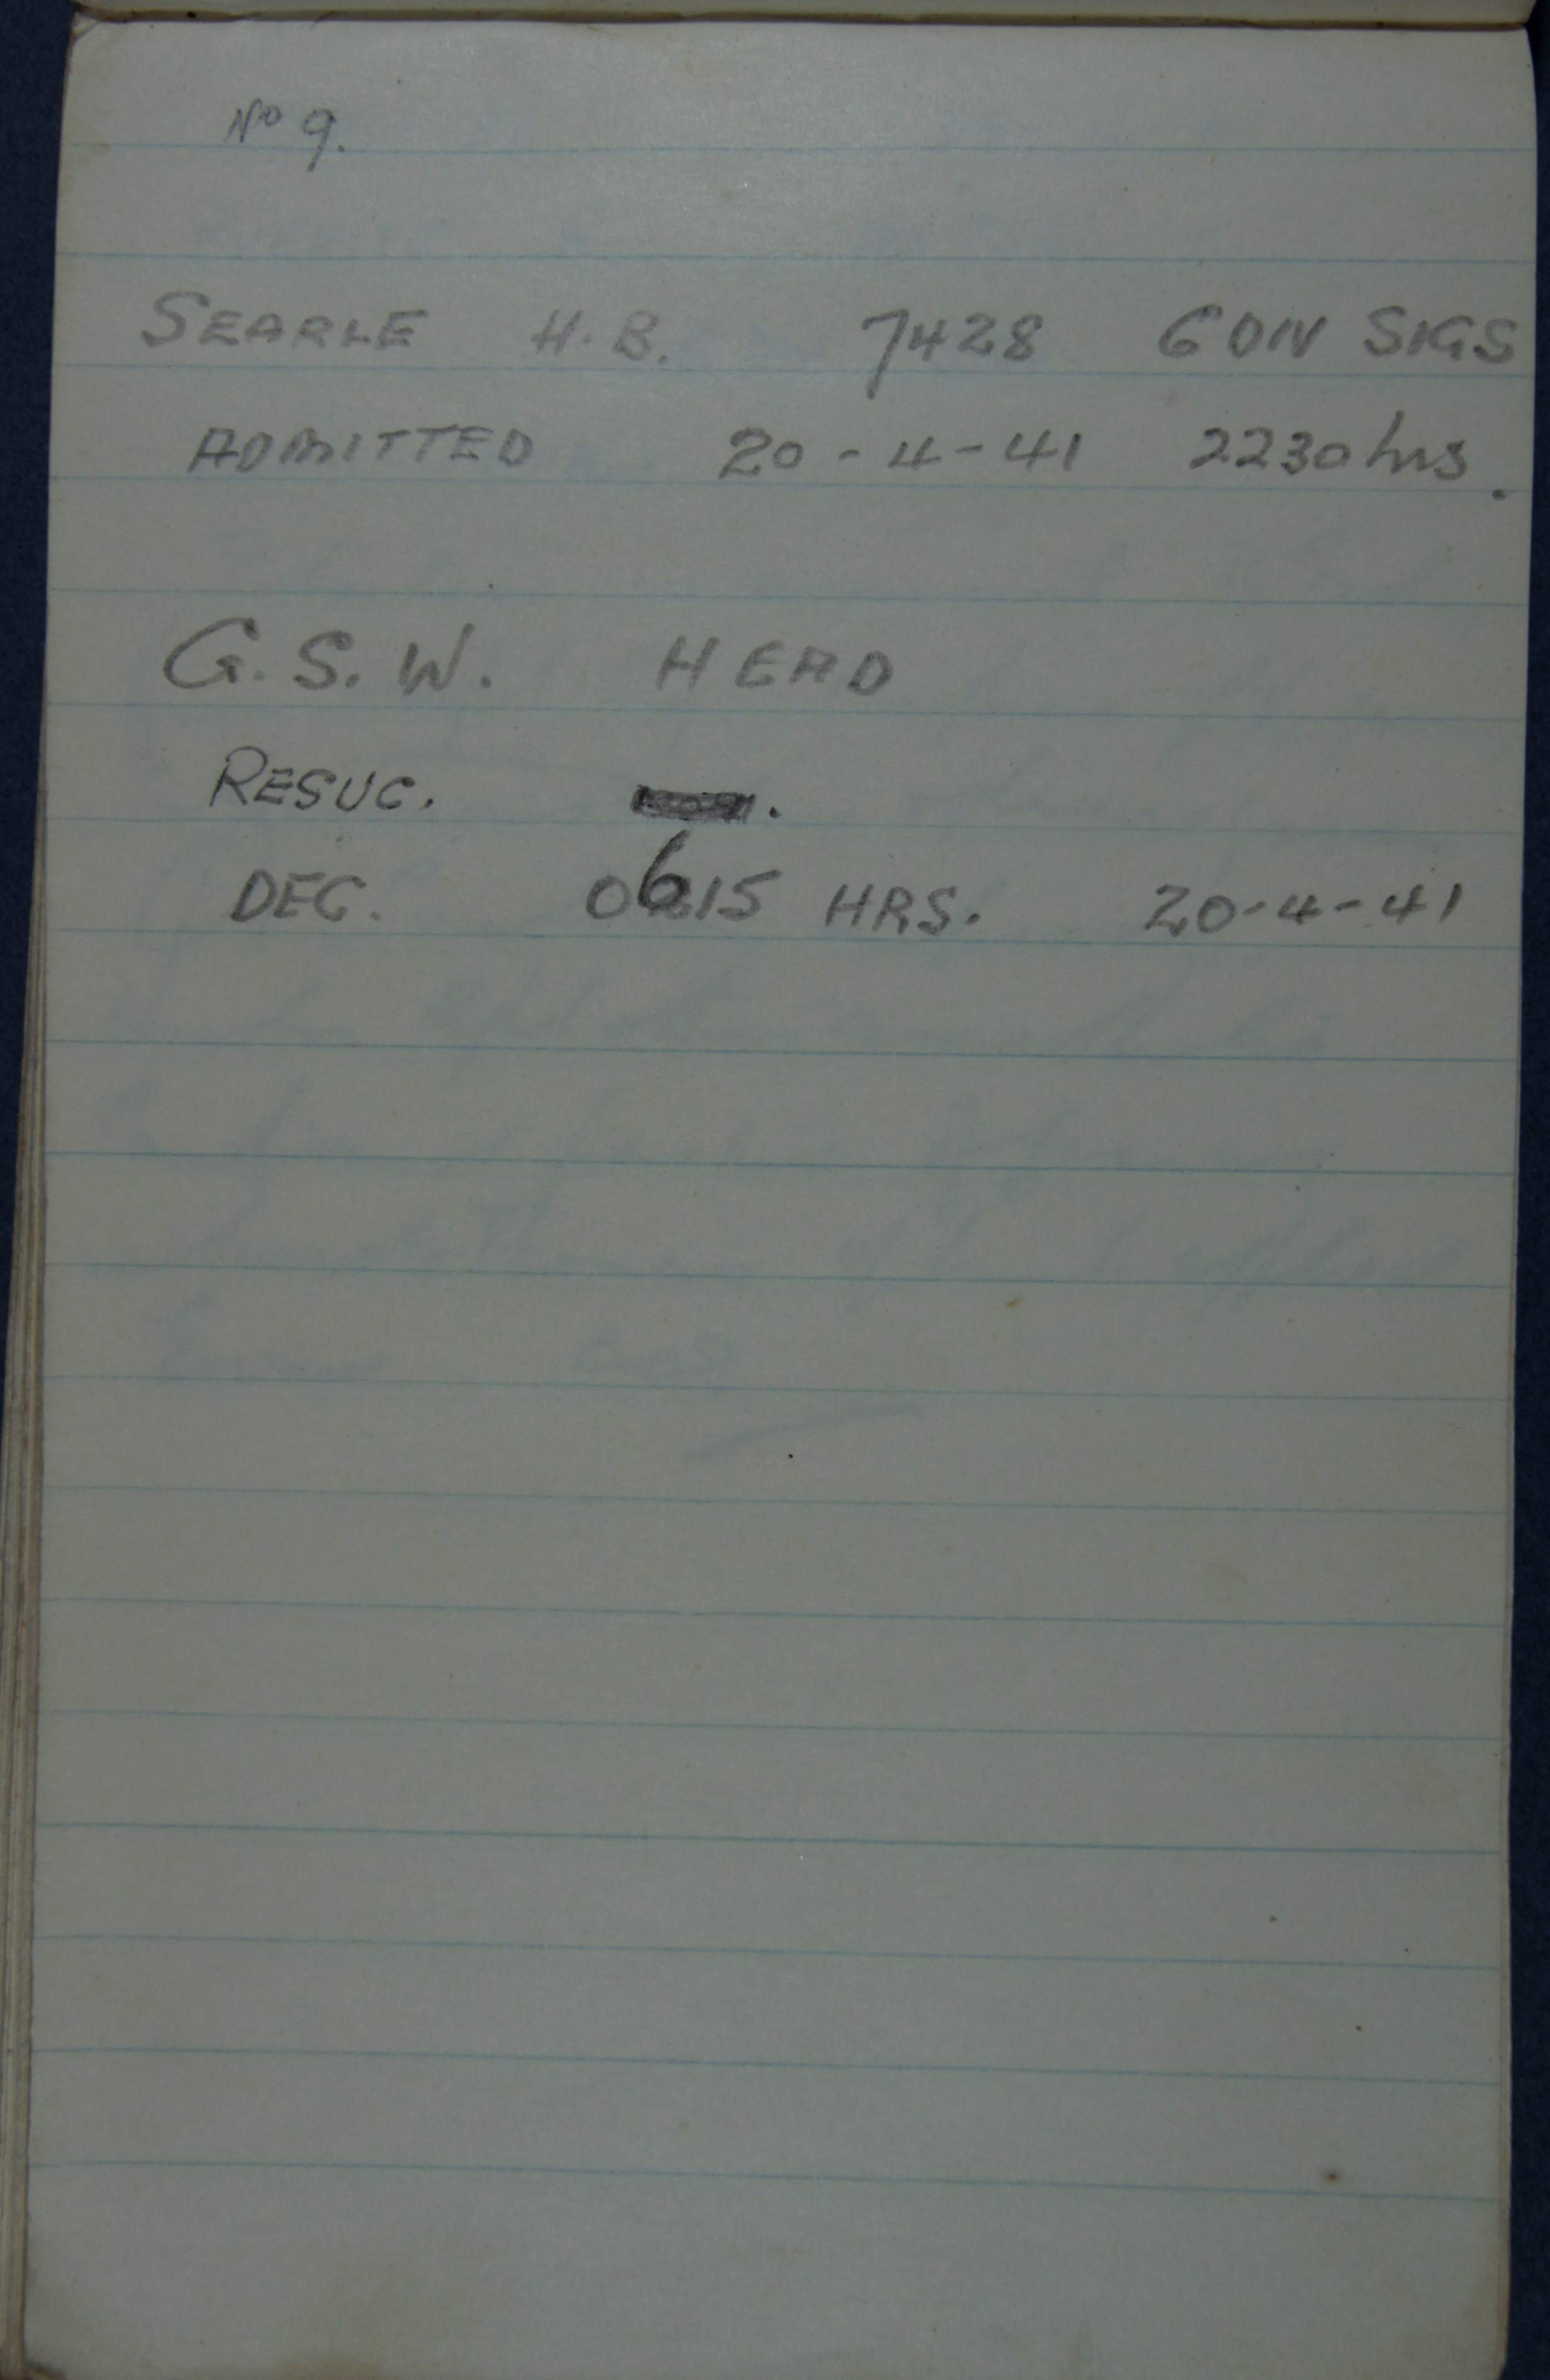 No 9.
SEARLE H.B. 7428 6 DIV SIGS
ADMITTED 20-4-41 2230 hrs.
G.S.W. HEAD
RESUC.
DEC. 0615 HRS. 20-4-41